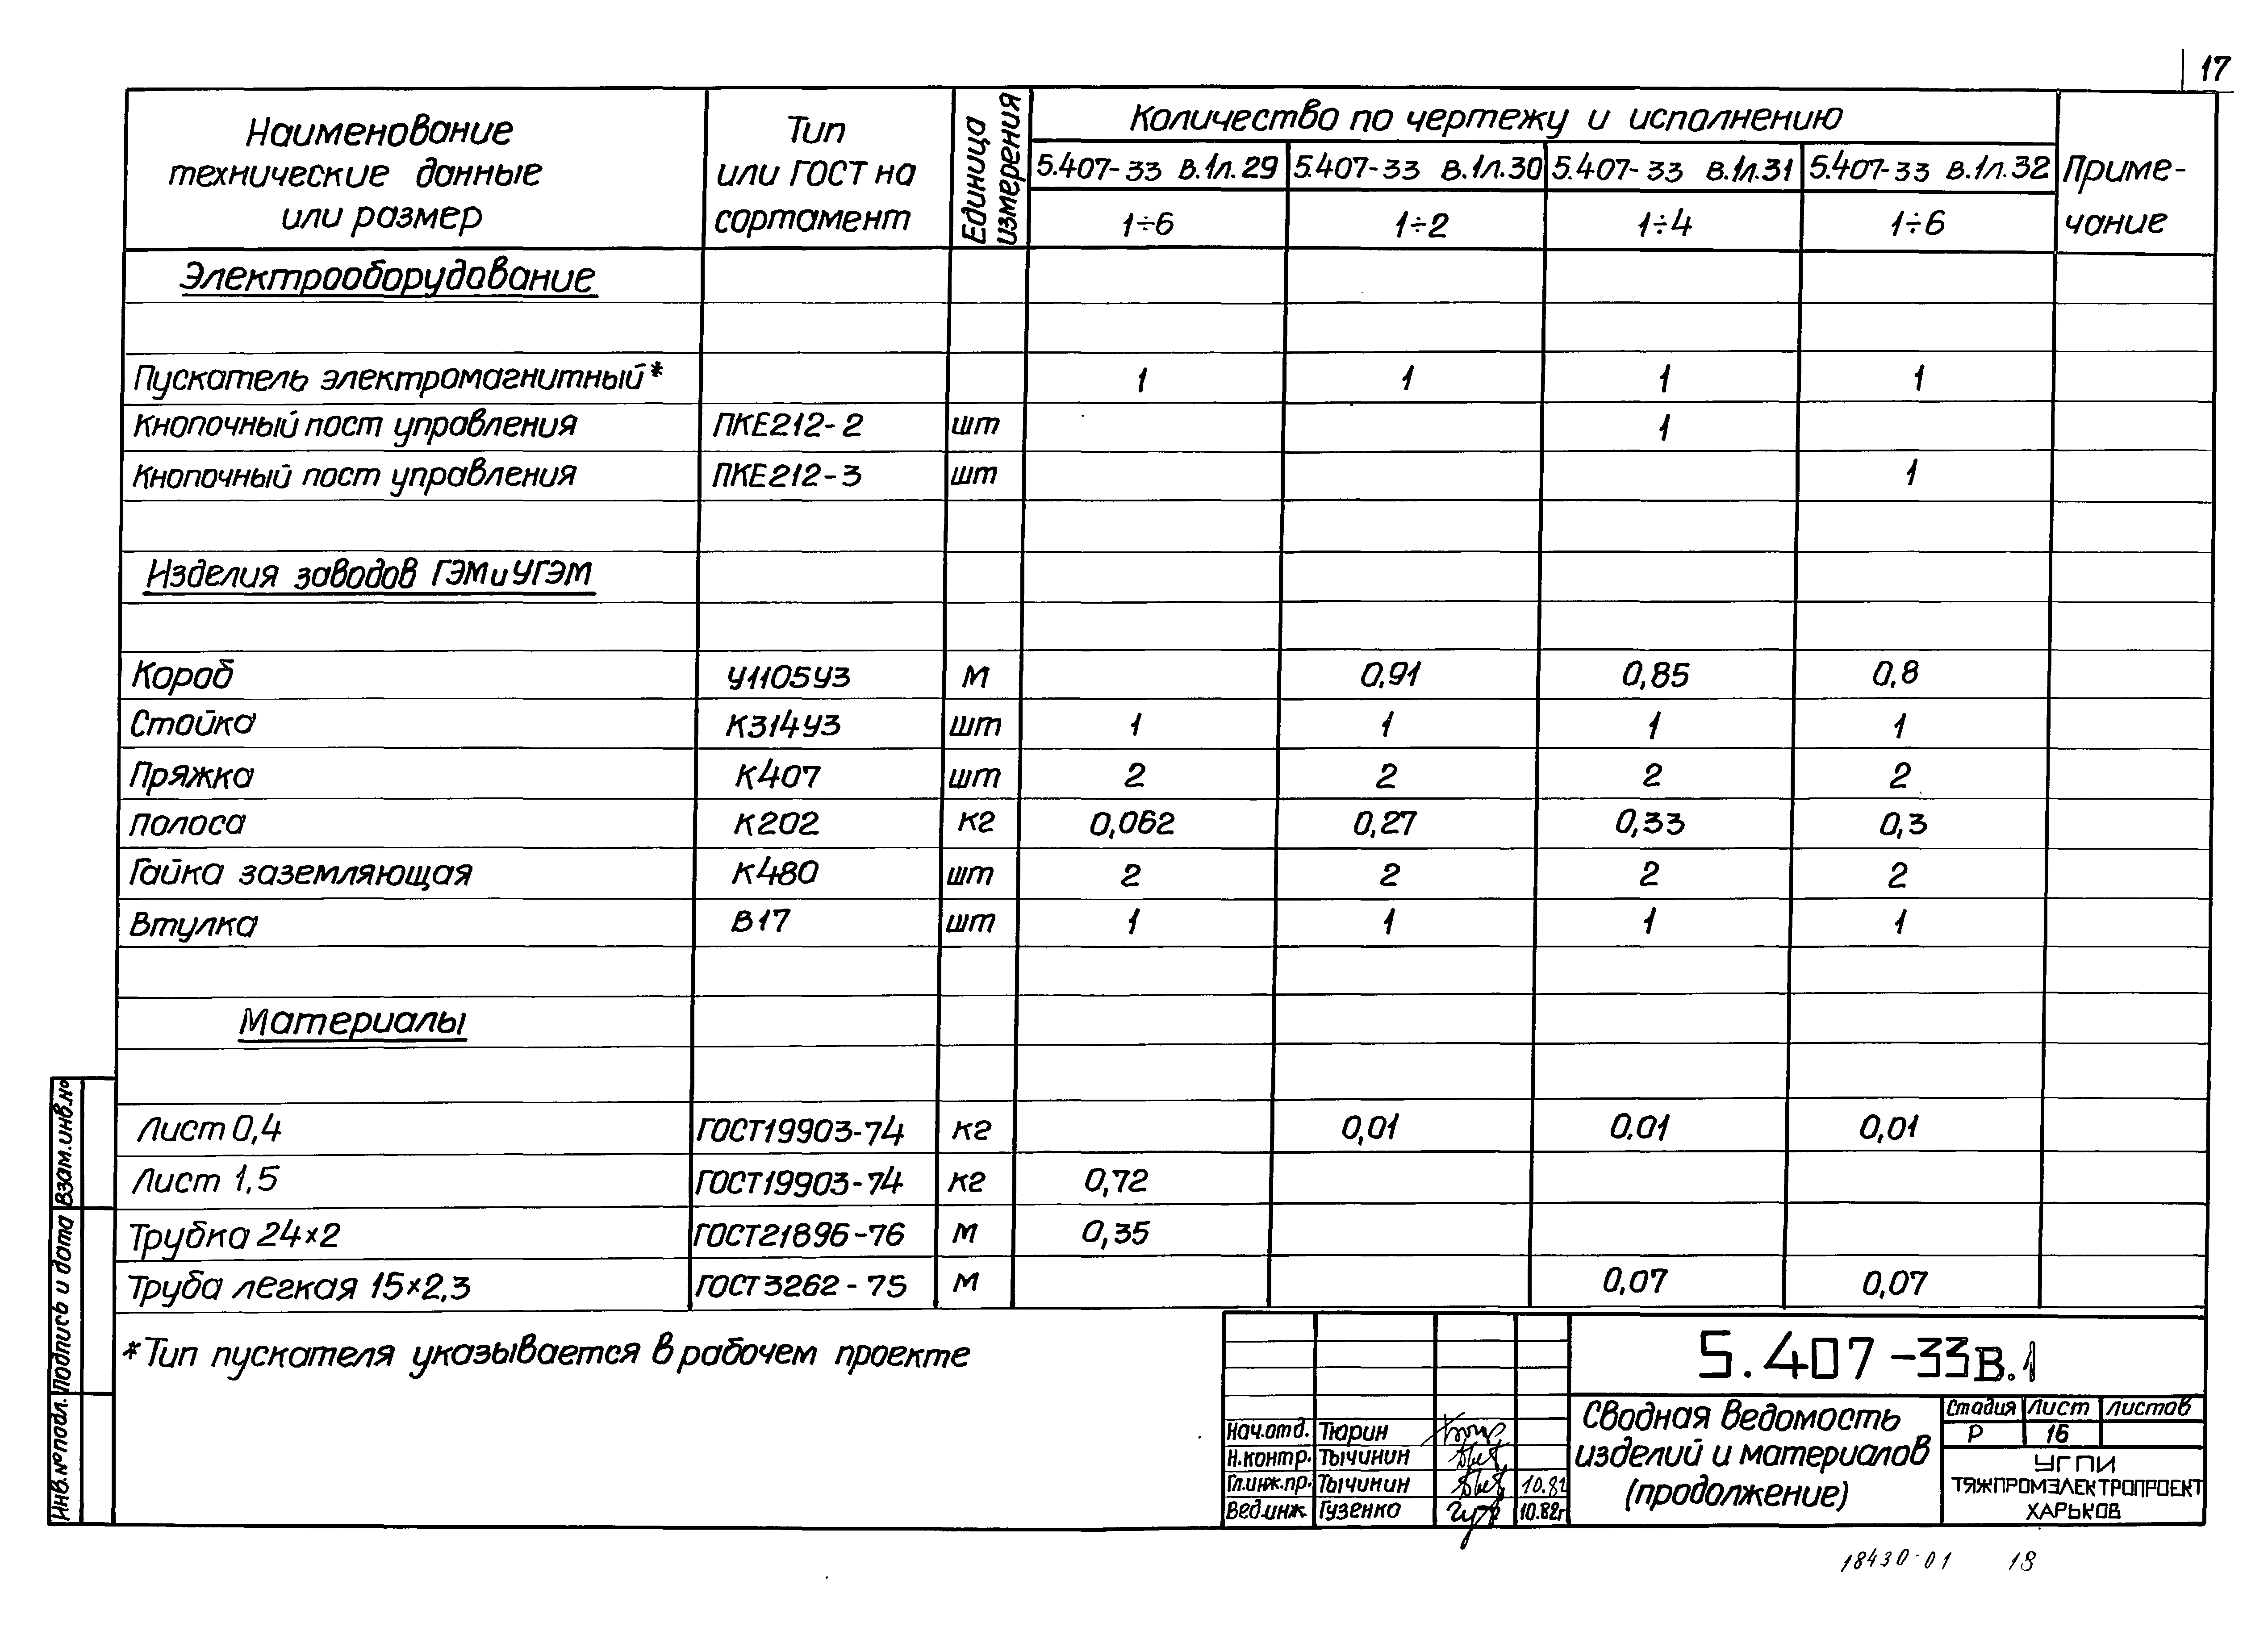 17
Наименование технические данные или размер
Тип или ГОСТ на сортамент
Единица измерения
Количество по чертежу и исполнению
Приме-чание
5.407-33 в.1л.29 5.407-33 в.1л.30 5.407-33 в.1л.31 5.407-33 в.1л.32
1÷6 1÷2 1÷4 1÷6
Электрооборудование
Пускатель электромагнитный* 1 1 1 1
Кнопочный пост управления ПКЕ212-2 шт 1
Кнопочный пост управления ПКЕ212-3 шт 1
Изделия заводов ГЭМ и УГЭМ
Короб У1105У3 м 0,91 0,85 0,8
Стойка К314У3 шт 1 1 1 1
Пряжка К407 шт 2 2 2 2
Полоса К202 кг 0,062 0,27 0,33 0,3
Гайка заземляющая К480 шт 2 2 2 2
Втулка В17 шт 1 1 1 1
Материалы
Лист 0,4 ГОСТ19903-74 кг 0,01 0,01 0,01
Лист 1,5 ГОСТ19903-74 кг 0,72
Трубка 24×2 ГОСТ21896-76 м 0,35
Труба легкая 15×2,3 ГОСТ3262-75 м 0,07 0,07
*Тип пускателя указывается в рабочем проекте
5.407-33в.1
Нач.отд. Тюрин
Н.контр. Тычинин
Гл.инж.пр. Тычинин 10.82
Вед.инж. Гузенко 10.82г
Сводная ведомость
изделий и материалов
(продолжение)
Стадия Лист Листов
Р 16
УГПИ
ТЯЖПРОМЭЛЕКТРОПРОЕКТ
ХАРЬКОВ
Инв.№подл. Подпись и дата Взам.инв.№
18430-01 18